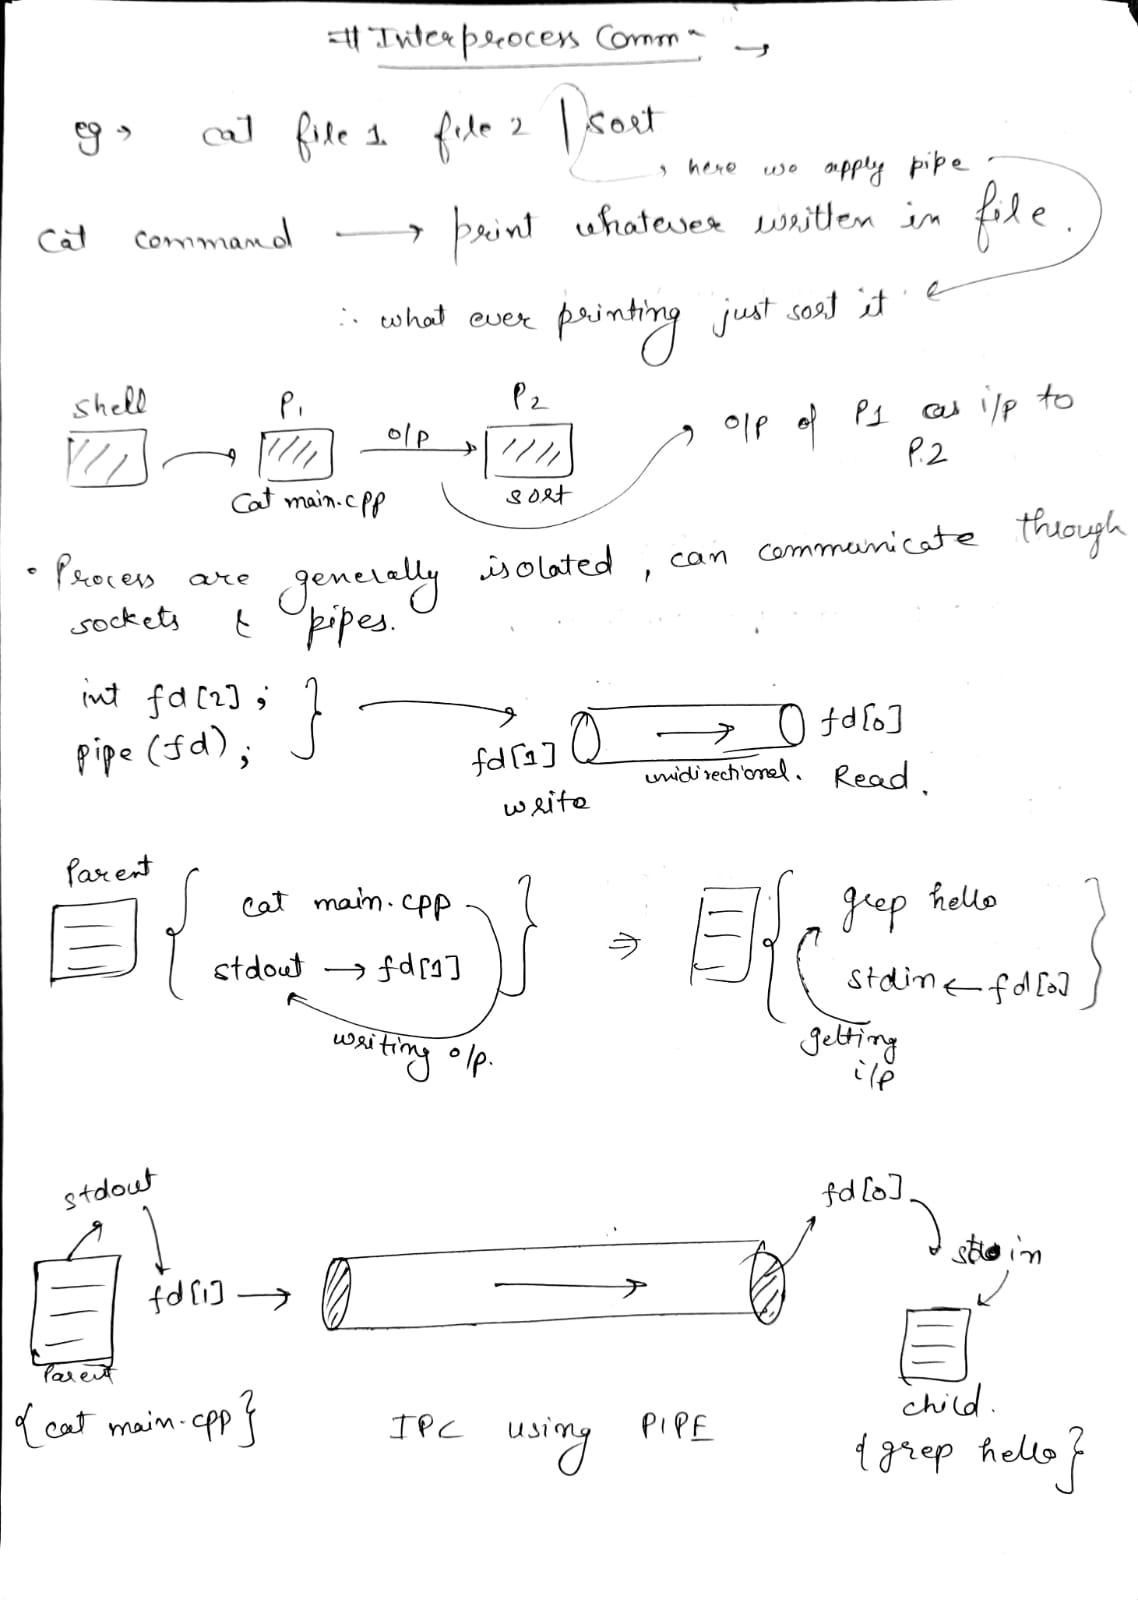 # Interprocess Comm~ →
eg → cat file 1 file 2 | sort
→ here we apply pipe
Cat command ⟶ print whatever written in file.
∴ what ever printing just sort it
Shell P1 P2
o/p
Cat main.cpp sort
o/p of P1 as i/p to
P.2
• Process are generally isolated, can communicate through
sockets & pipes.
int fd[2];
pipe(fd);
fd[1]
write
unidirectional.
fd[0]
Read.
Parent
cat main.cpp
stdout → fd[1]
writing o/p.
⇒
grep hello
stdin ← fd[0]
getting
i/p
stdout
fd[1] →
Parent
{cat main.cpp}
IPC using PIPE
fd[0]
stdin
child.
{grep hello}